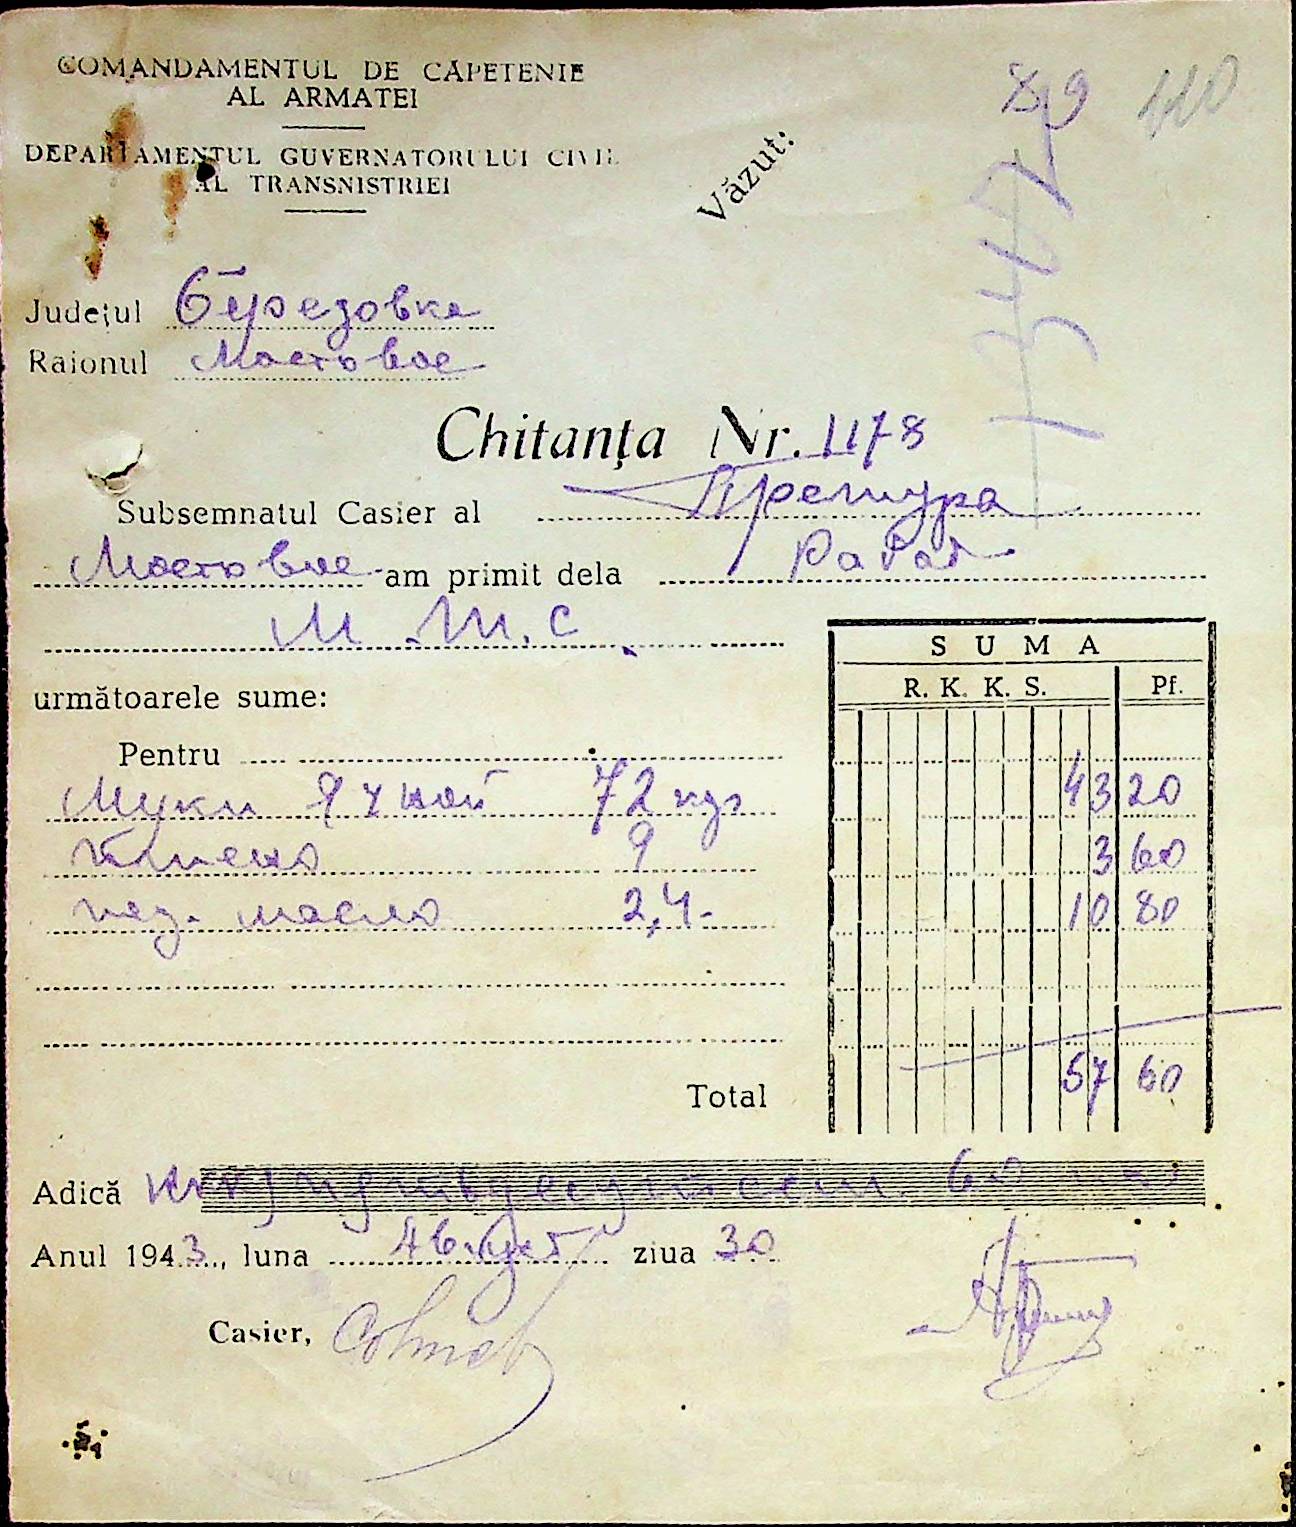 COMANDAMENTUL DE CĂPETENIE
AL ARMATEI
DEPARTAMENTUL GUVERNATORULUI CIVIL
AL TRANSNISTRIEI
Văzut:
89
110
13477
Județul Березовка
Raionul Мостовое
Chitanța Nr. 1178
Subsemnatul Casier al Претура
Мостовое am primit dela Рабат
М.Т.С.
următoarele sume:
SUMA
R. K. K. S. Pf.
Pentru
Муки ячной 72 кгр 43 20
Пшено 9 3 60
под. масло 2,4- 10 80
Total 57 60
Adică пятьдесят сем 60
Anul 1943, luna Август ziua 30
Casier,